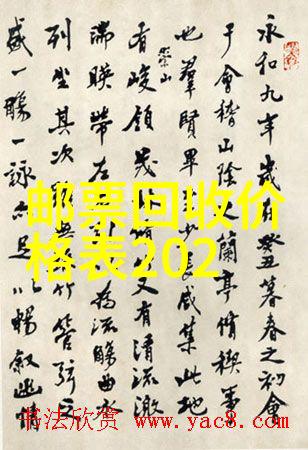 永和九年歲在癸丑暮春之初會
于會稽山陰之蘭亭脩稧事
也羣賢畢少長咸集此地
崇山
有峻領茂又有清流激
湍暎帶左為流觴曲水
列坐其次雖無竹管弦之
盛一觴一詠亦足以暢敘幽情
邮票回收价
格表202
书法欣赏 www.yac8.com